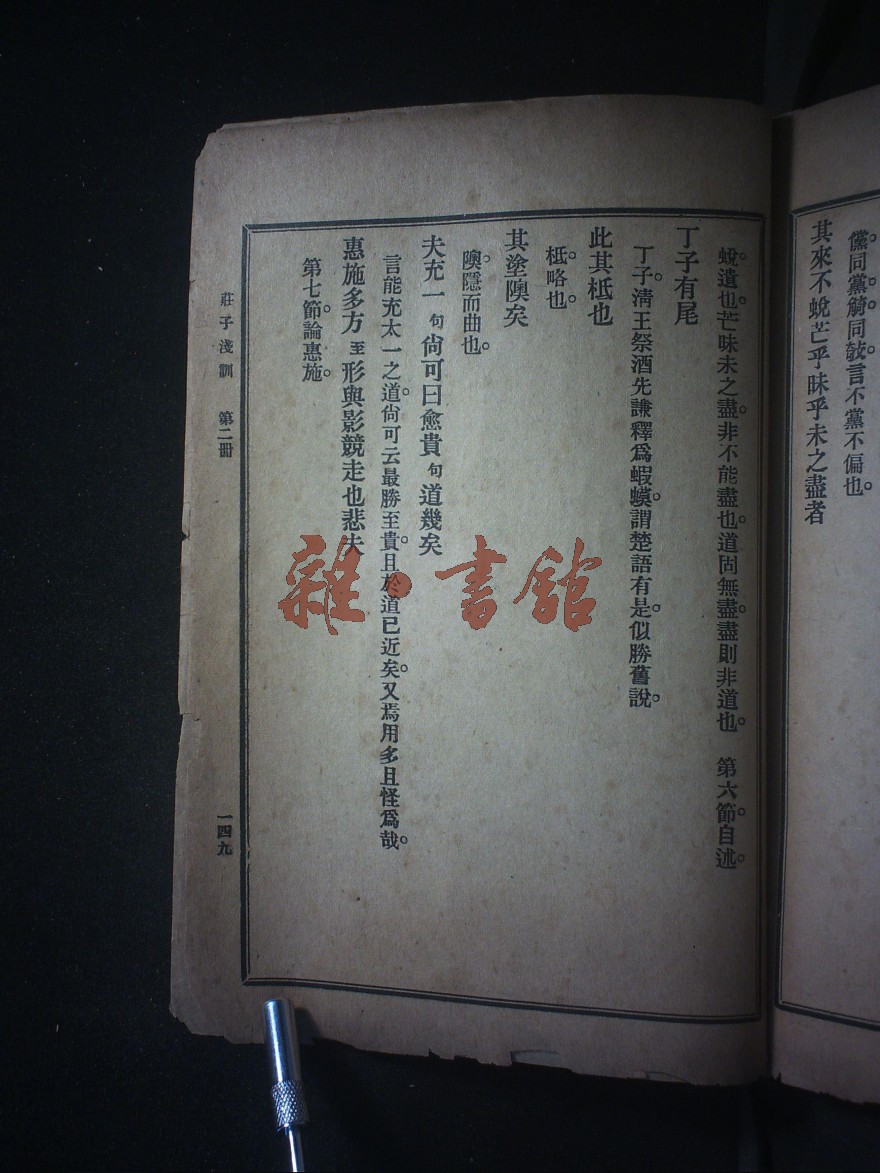 儻同黨。觭同攲。言不黨不偏也。
其來不蛻芒乎昧乎未之盡者
蛻。遺也。芒昧未之盡。非不能盡也。道固無盡。盡則非道也。 第六節。自述。
丁子有尾
丁子。淸王祭酒先謙釋爲蝦蟆。謂楚語有是。似勝舊說。
此其柢也
柢。略也。
其塗隩矣
隩。隱而曲也。
夫充一句尙可曰愈貴句道幾矣
言能充太一之道。尙可云最勝至貴。且於道已近矣。又焉用多且怪爲哉。
惠施多方至形與影競走也悲夫
第七節。論惠施。
莊子淺訓 第二冊 一四九
雜·書館